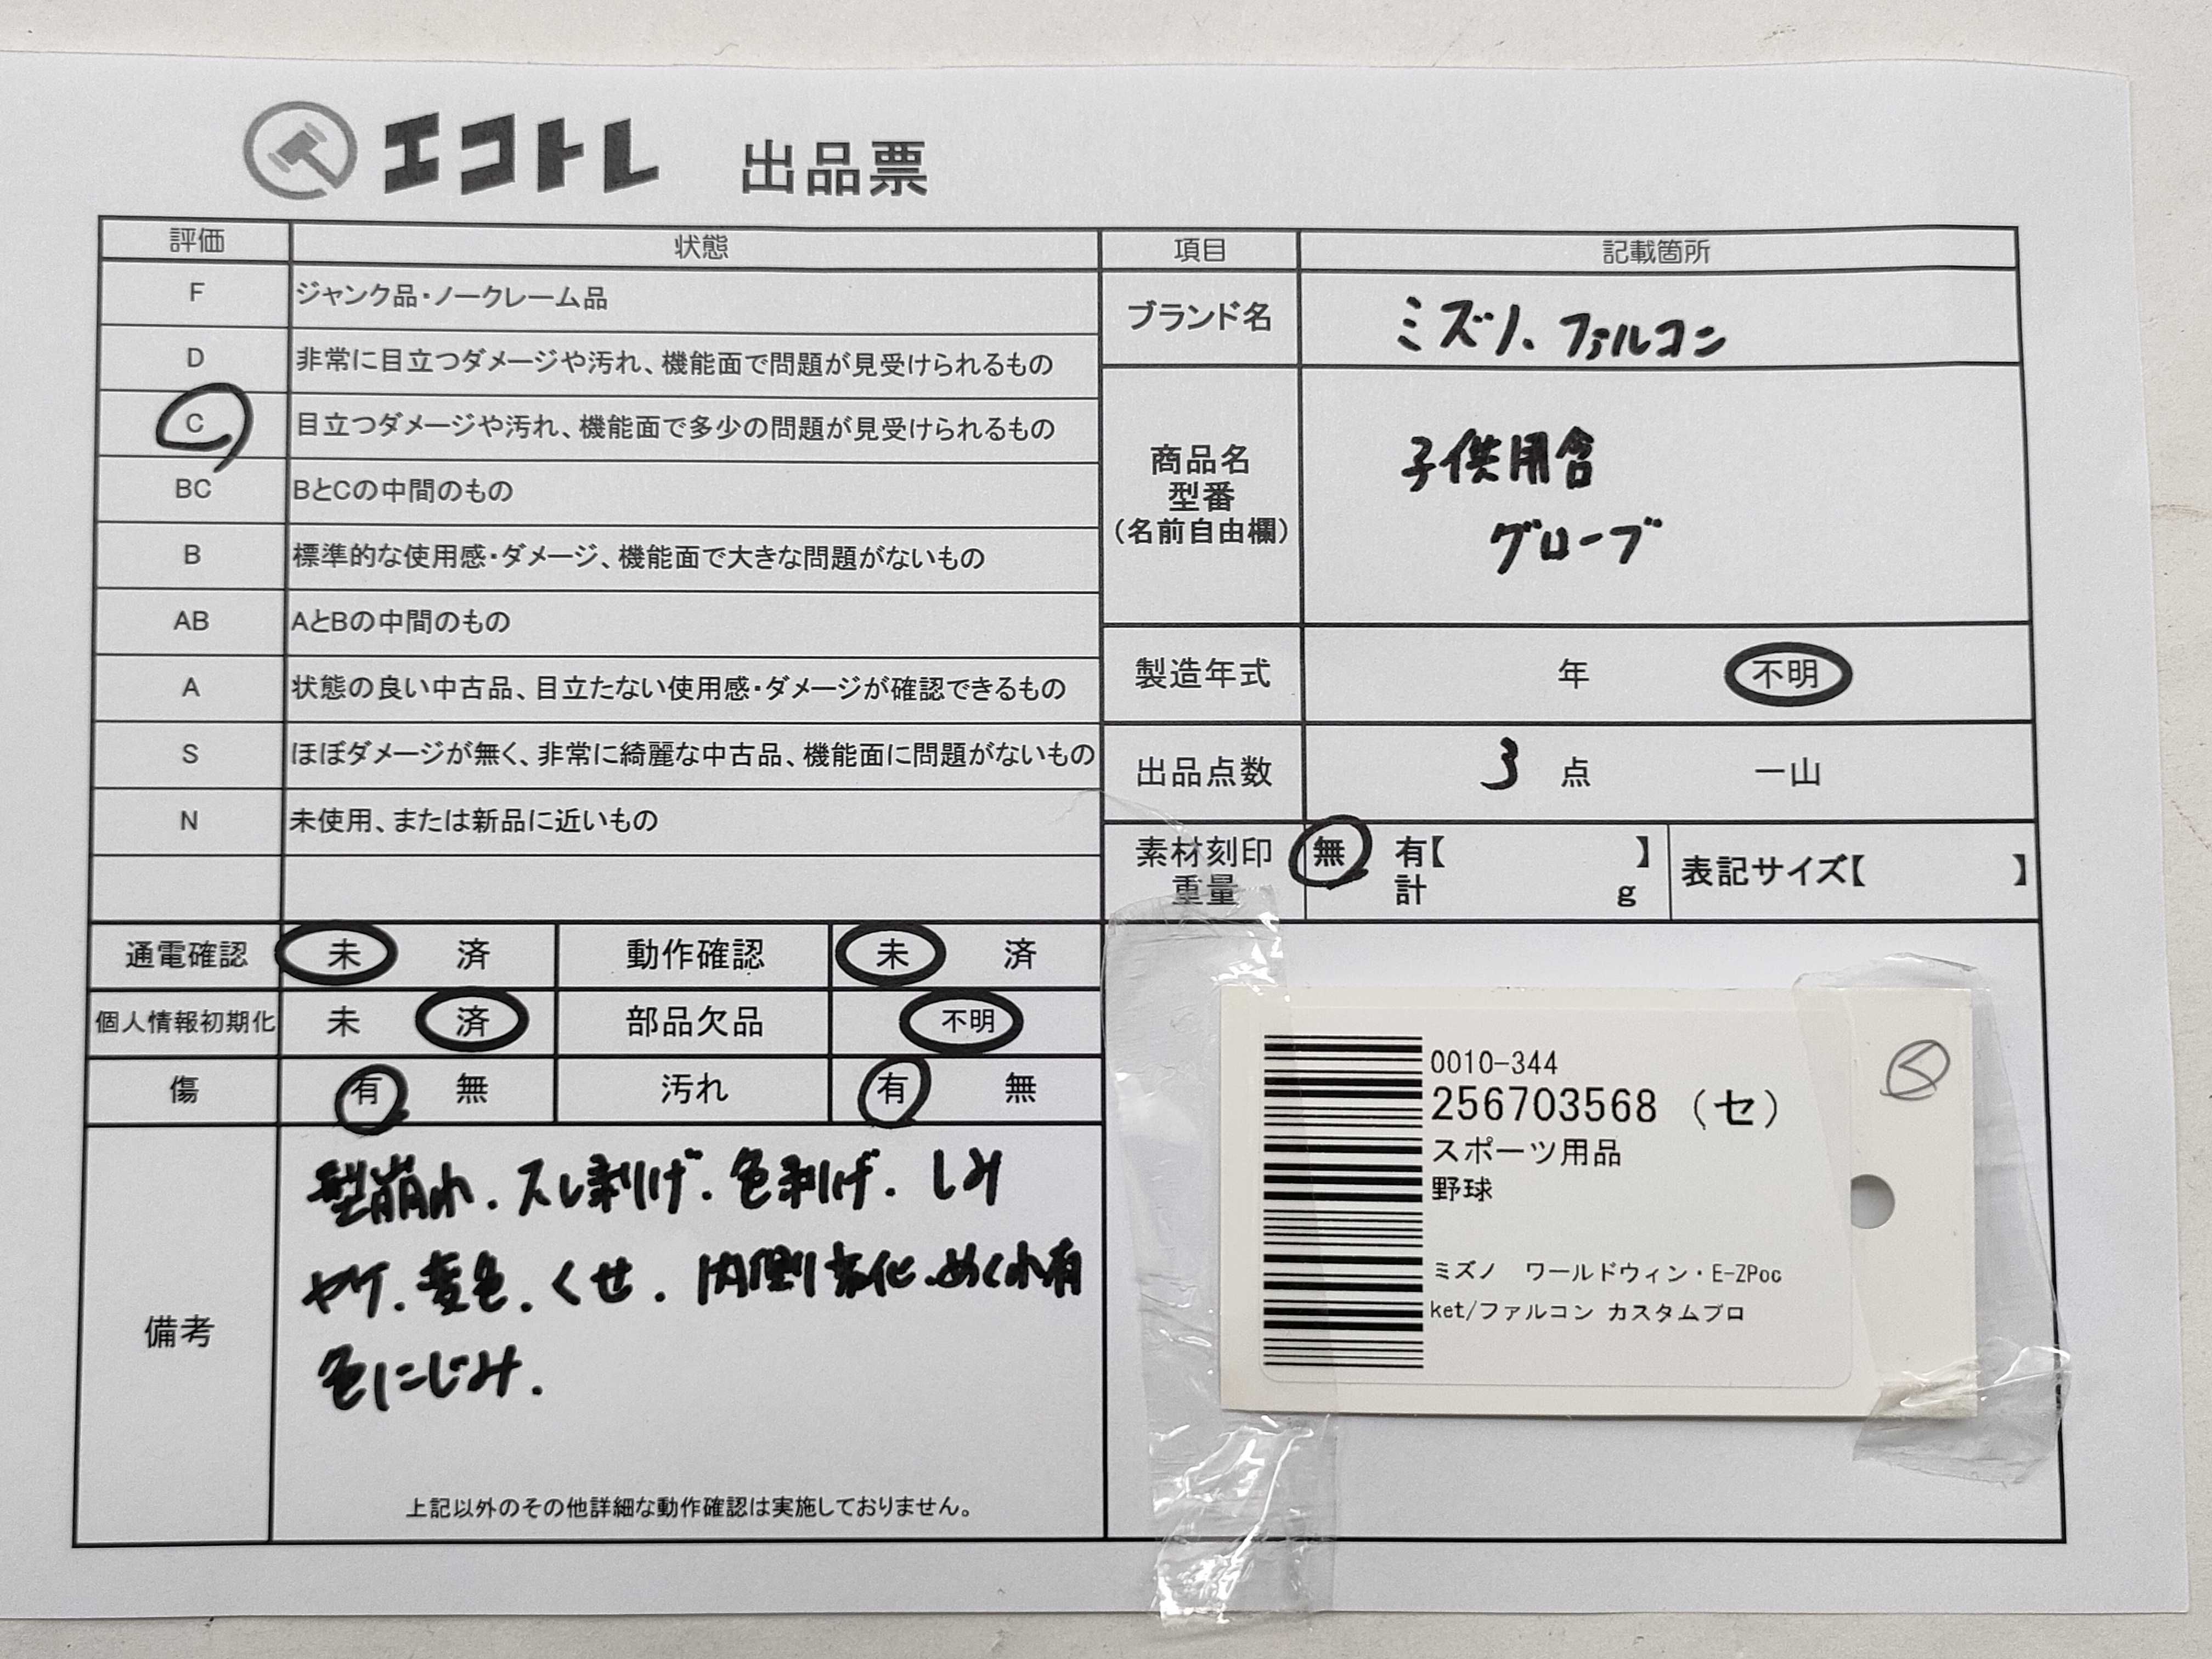 エコトレ 出品票
評価 状態
F ジャンク品・ノークレーム品
D 非常に目立つダメージや汚れ、機能面で問題が見受けられるもの
C 目立つダメージや汚れ、機能面で多少の問題が見受けられるもの
BC BとCの中間のもの
B 標準的な使用感・ダメージ、機能面で大きな問題がないもの
AB AとBの中間のもの
A 状態の良い中古品、目立たない使用感・ダメージが確認できるもの
S ほぼダメージが無く、非常に綺麗な中古品、機能面に問題がないもの
N 未使用、または新品に近いもの
項目 記載箇所
ブランド名 ミズノ、ファルコン
商品名
型番
(名前自由欄)
子供用含
グローブ
製造年式 年 不明
出品点数 3 点 一山
素材刻印 無 有【 】
重量 計 g
表記サイズ【 】
通電確認 未 済 動作確認 未 済
個人情報初期化 未 済 部品欠品 不明
傷 有 無 汚れ 有 無
備考
型崩れ.スレ剥げ.色剥げ.しみ
ヤケ.変色.くせ.内側劣化.めくれ有
色にじみ.
上記以外のその他詳細な動作確認は実施しておりません。
0010-344
256703568 (セ)
スポーツ用品
野球
ミズノ ワールドウィン・E-ZPoc
ket/ファルコン カスタムプロ